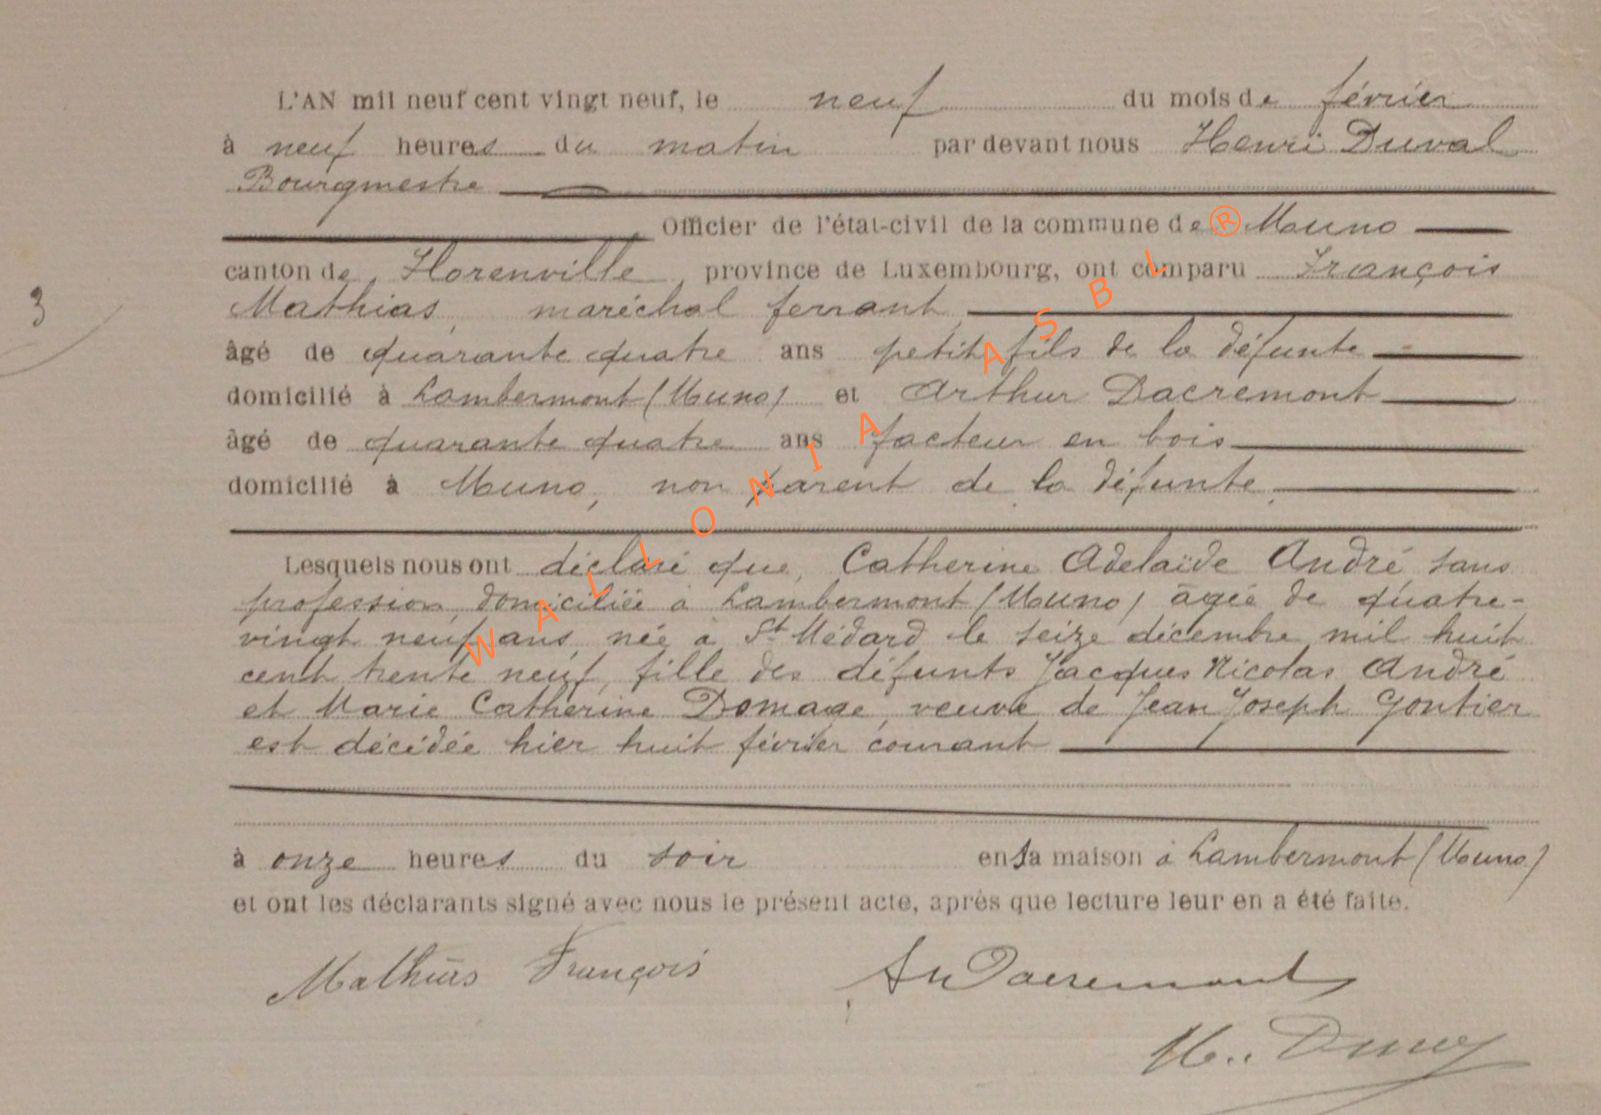 L'AN mil neuf cent vingt neuf, le neuf du mois de février
à neuf heures du matin par devant nous Henri Duval
Bourgmestre
Officier de l'état-civil de la commune de Muno
3 canton de Florenville province de Luxembourg, ont comparu François
Mathias, maréchal ferrant,
âgé de quarante quatre ans petit fils de la défunte
domicilié à Lambermont (Muno) et Arthur Dacremont
âgé de quarante quatre ans facteur en bois
domicilié à Muno, non parent de la défunte,
Lesquels nous ont déclaré que, Catherine Adelaïde André, sans
profession, domiciliée à Lambermont (Muno) âgée de quatre-
vingt neuf ans, née à St Médard le seize décembre mil huit
cent trente neuf, fille des défunts Jacques Nicolas André
et Marie Catherine Domage, veuve de Jean Joseph Gontier
est décédée hier huit février courant
à onze heures du soir en sa maison à Lambermont (Muno)
et ont les déclarants signé avec nous le présent acte, après que lecture leur en a été faite.
Mathias François Dacremont
WALLONIA ASBL ®